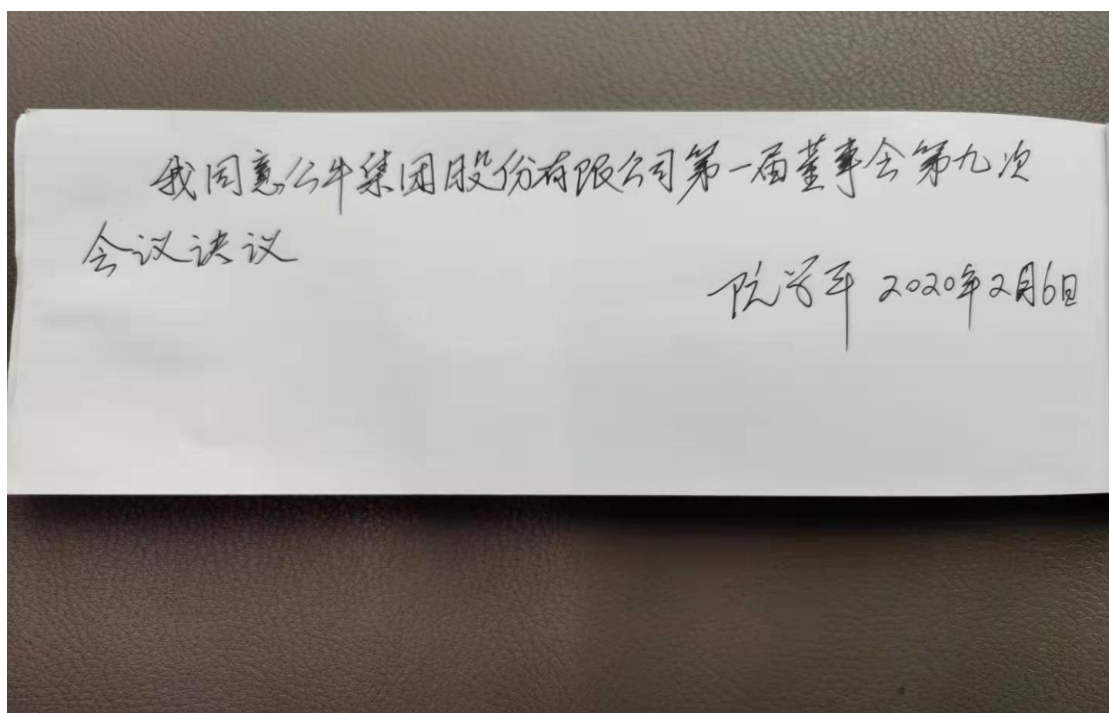 我同意公牛集团股份有限公司第一届董事会第九次
会议决议
阮学平 2020年2月6日